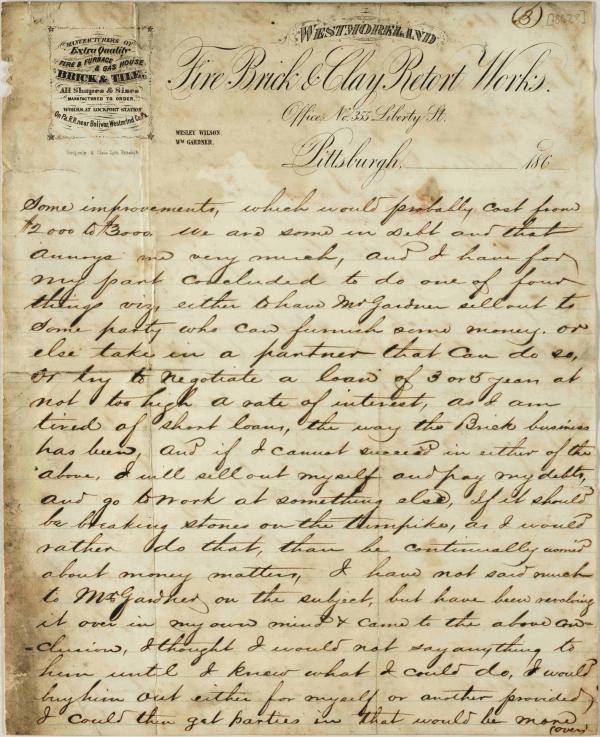 (3) [1862?]
MANUFACTURERS OF
Extra Quality
FIRE & FURNACE
& GAS HOUSE
BRICK & TILE,
All Shapes & Sizes
MANUFACTURED TO ORDER.
WORKS AT LOCKPORT STATION
On Pa. R.R. near Bolivar, Westmrlnd Co. Pa.
WESTMORELAND
Fire Brick & Clay Retort Works.
Office No. 355 Liberty St.
WESLEY WILSON.
Wm GARDNER.
Pittsburgh, 186
Some improvements, which would probably cost from
$2000 to $3000. We are some in debt and that
annoys me very much, and I have for
my part concluded to do one of four
things viz, either to have Mr Gardner sell out to
some party who can furnish some money. or
else take in a partner that can do so,
or try to negotiate a loan of 3 or 5 years at
not too high a rate of interest, as I am
tired of short loans, the way the Brick business
has been, and if I cannot succeed in either of the
above, I will sell out myself and pay my debts,
and go to work at something else, If it should
be breaking stones on the turnpike, as I would
rather do that, than be continually worried
about money matters, I have not said much
to Mr Gardner on the subject, but have been revolving
it over in my own mind & came to the above con-
-clusion, I thought I would not say anything to
him until I knew what I could do, I would
buy him out either for myself or another provided
I could then get parties in that would be more
(over)